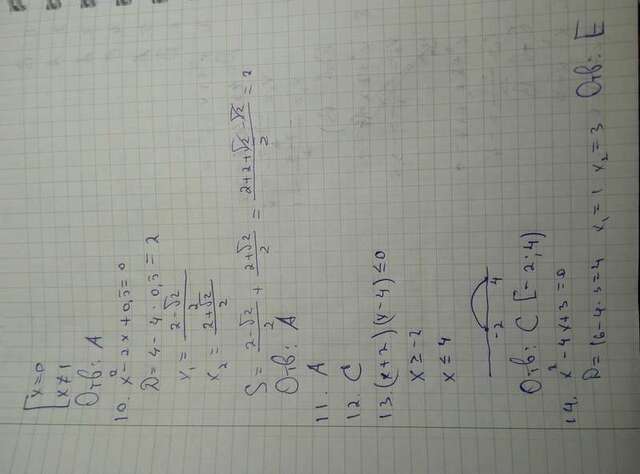 [x=0
[x≠1
Отв: А
10. x²-2x+0,5=0
D=4-4·0,5=2
x₁=(2-√2)/2
x₂=(2+√2)/2
S=(2-√2)/2+(2+√2)/2=(2+2+√2-√2)/2=2
Отв: А
11. А
12. С
13. (x+2)(x-4)≤0
x≥-2
x≤4
-2 4
Отв: С [-2;4)
14. x²-4x+3=0
D=16-4·3=4 x₁=1 x₂=3 Отв: E